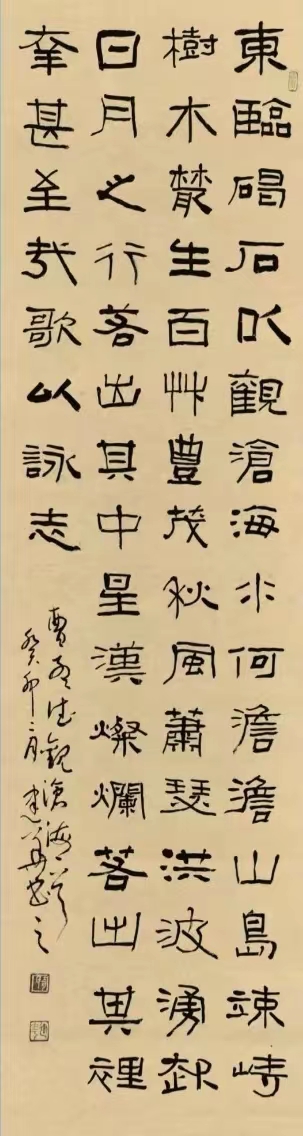 東臨碣石以觀滄海水何澹澹山島竦峙
樹木叢生百艸豐茂秋風蕭瑟洪波湧起
日月之行若出其中星漢燦爛若出其裡
幸甚至哉歌以詠志
曹孟德觀滄海
癸卯二月書之